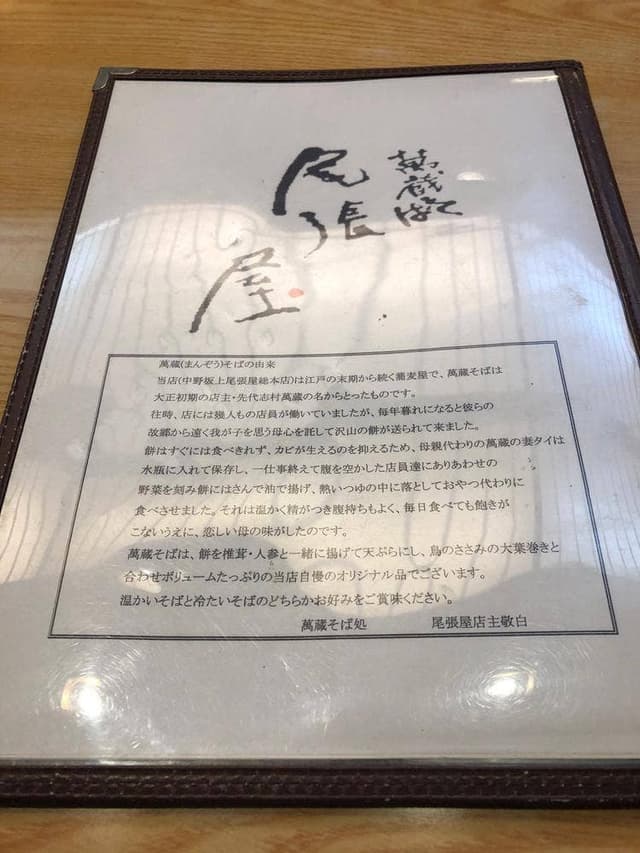 萬蔵そば
尾張屋
萬蔵(まんぞう)そばの由来
当店(中野坂上尾張屋総本店)は江戸の末期から続く蕎麦屋で、萬蔵そばは
大正初期の店主・先代志村萬蔵の名からとったものです。
往時、店には幾人もの店員が働いていましたが、毎年暮れになると彼らの
故郷から遠く我が子を思う母心を託して沢山の餅が送られて来ました。
餅はすぐには食べきれず、カビが生えるのを抑えるため、母親代わりの萬蔵の妻タイは
水瓶に入れて保存し、一仕事終えて腹を空かした店員達にありあわせの
野菜を刻み餅にはさんで油で揚げ、熱いつゆの中に落としておやつ代わりに
食べさせました。それは温かく精がつき腹持ちもよく、毎日食べても飽きが
こないうえに、恋しい母の味がしたのです。
萬蔵そばは、餅を椎茸・人参と一緒に揚げて天ぷらにし、鳥のささみの大葉巻きと
合わせボリュームたっぷりの当店自慢のオリジナル品でございます。
温かいそばと冷たいそばのどちらかお好みをご賞味ください。
萬蔵そば処 尾張屋店主敬白